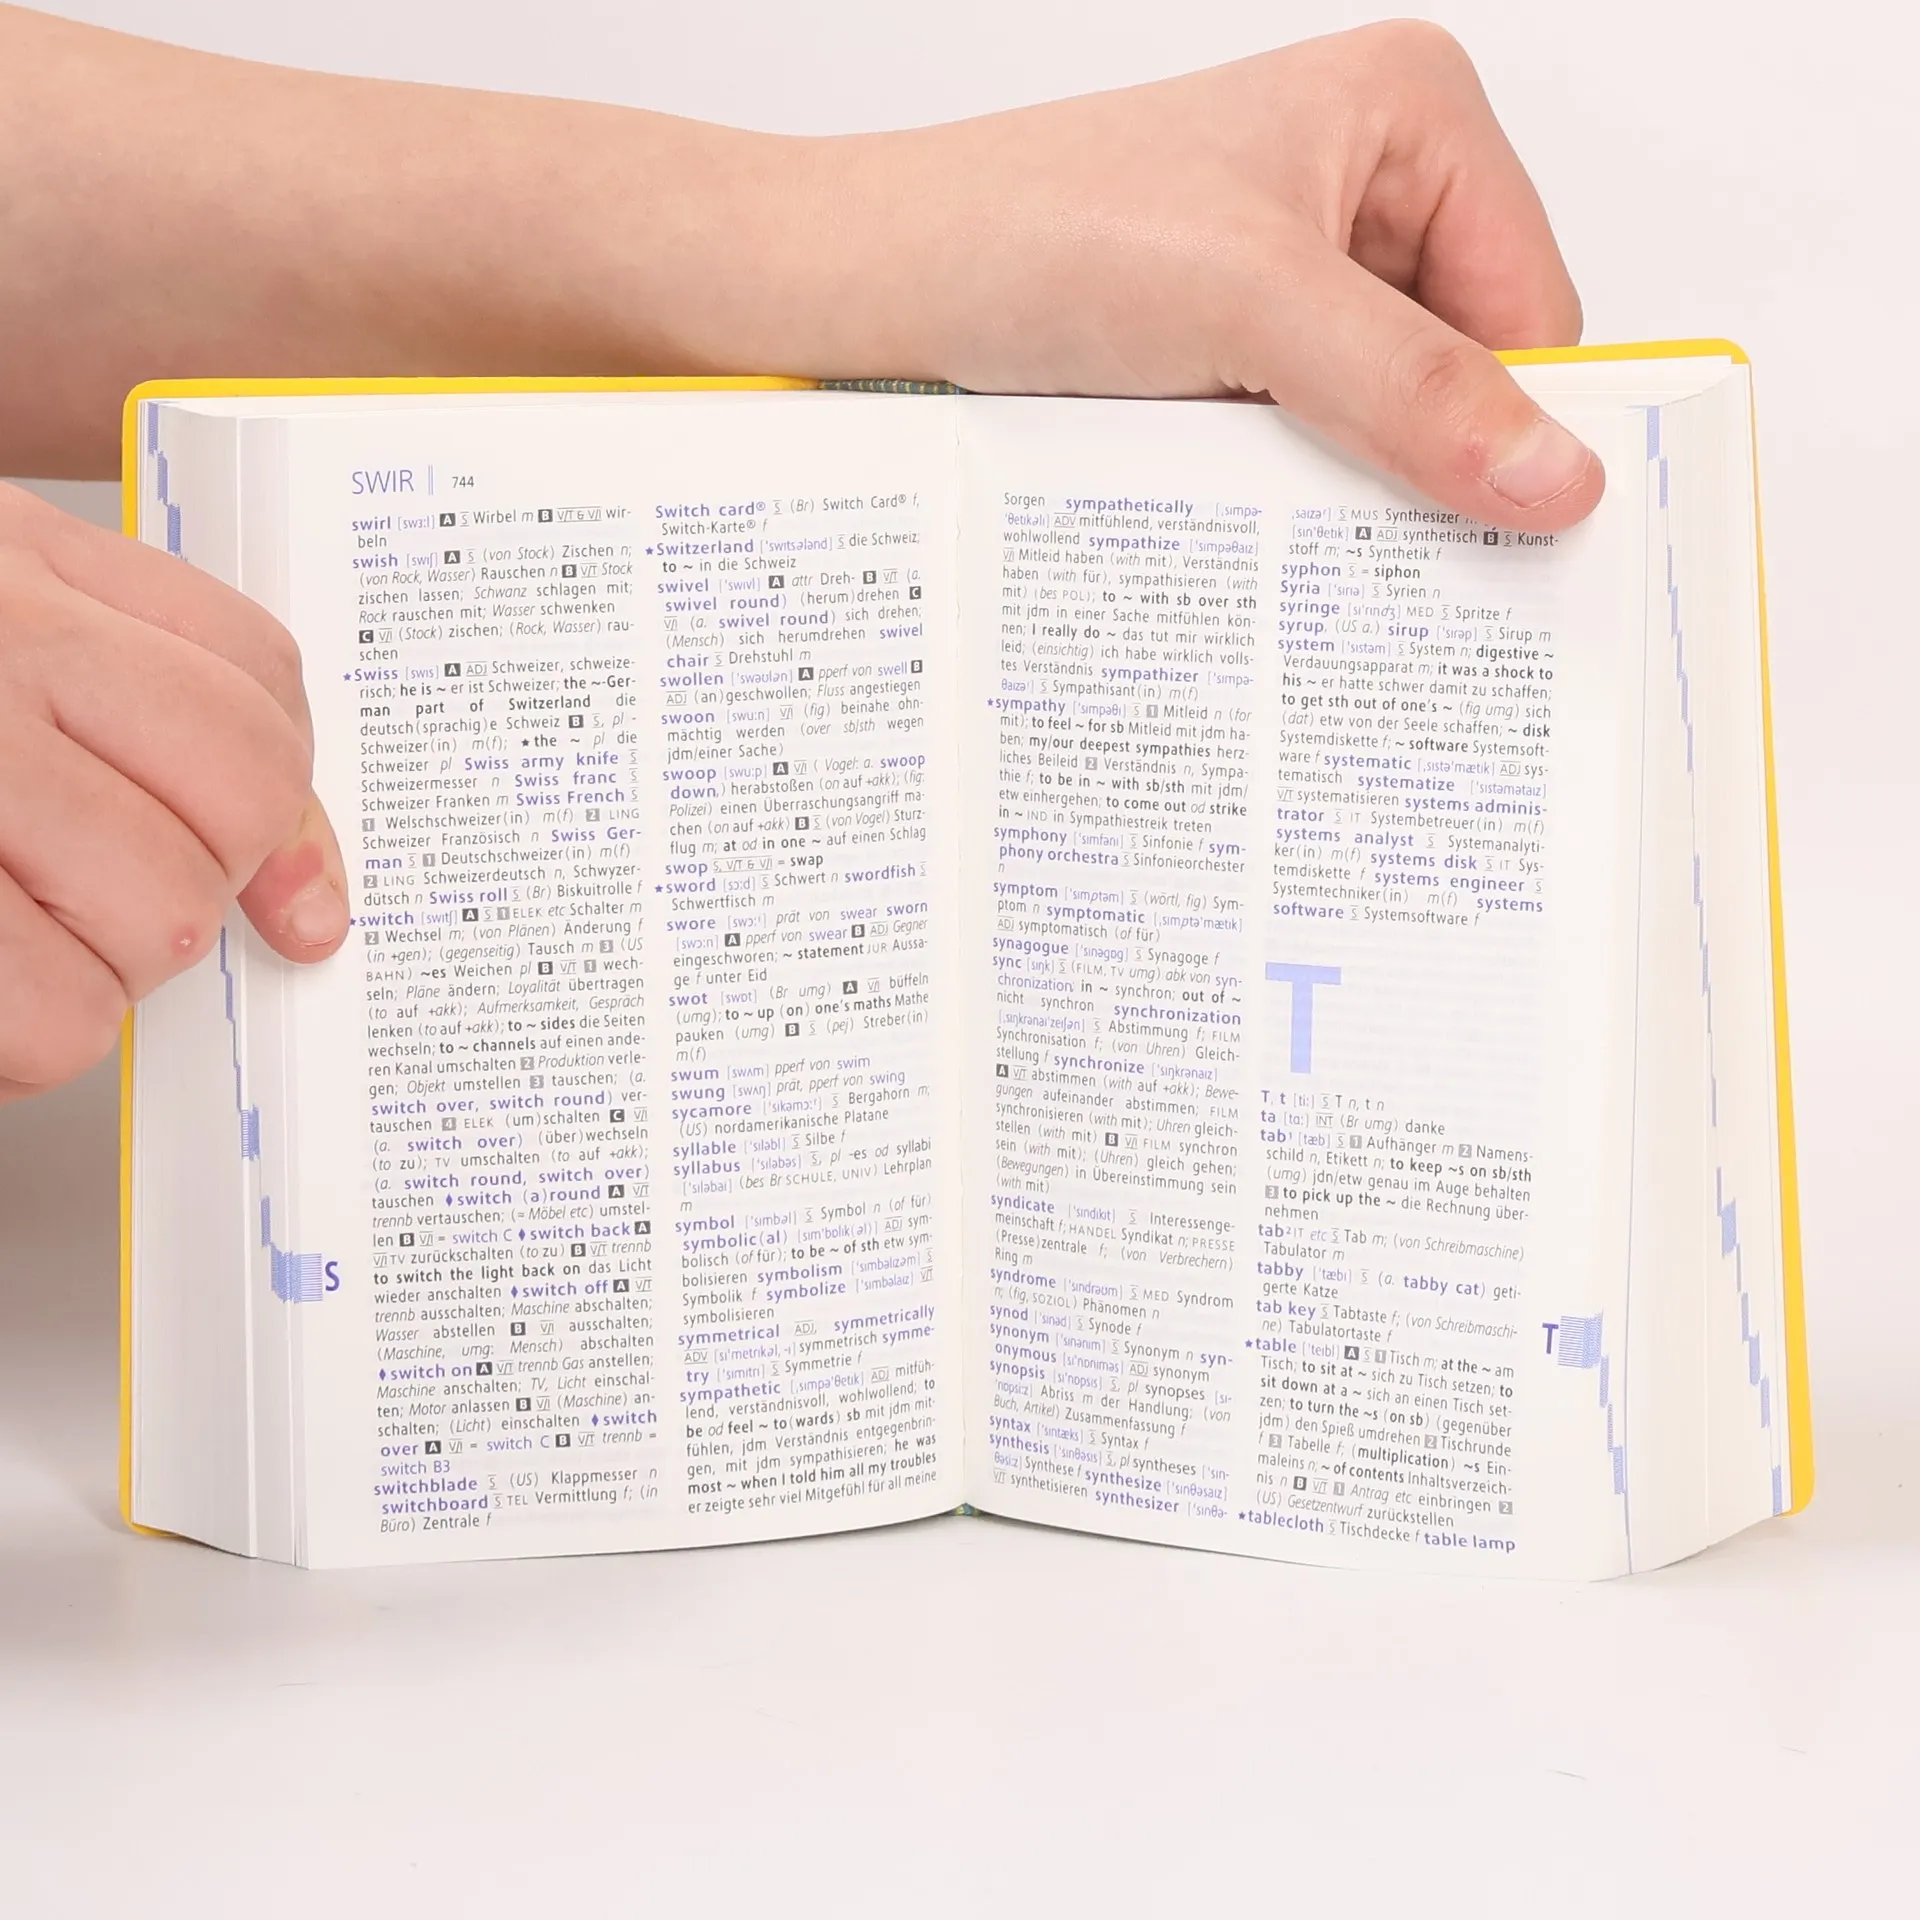 SWIR 744
swirl [swɜːl] A S Wirbel m B V/T & V/I wir-
beln
swish [swɪʃ] A S (von Stock) Zischen n;
(von Rock, Wasser) Rauschen n B V/T Stock
zischen lassen; Schwanz schlagen mit;
Rock rauschen mit; Wasser schwenken
C V/I (Stock) zischen; (Rock, Wasser) rau-
schen
★Swiss [swɪs] A ADJ Schweizer, schweize-
risch; he is ~ er ist Schweizer; the ~-Ger-
man part of Switzerland die
deutsch(sprachig)e Schweiz B S, pl -
Schweizer(in) m(f); ★the ~ pl die
Schweizer pl Swiss army knife S
Schweizermesser n Swiss franc S
Schweizer Franken m Swiss French S
1 Welschschweizer(in) m(f) 2 LING
Schweizer Französisch n Swiss Ger-
man S 1 Deutschschweizer(in) m(f)
2 LING Schweizerdeutsch n, Schwyzer-
dütsch n Swiss roll S (Br) Biskuitrolle f
★switch [swɪtʃ] A S 1 ELEK etc Schalter m
2 Wechsel m; (von Plänen) Änderung f
(in +gen); (gegenseitig) Tausch m 3 (US
BAHN) ~es Weichen pl B V/T 1 wech-
seln; Pläne ändern; Loyalität übertragen
(to auf +akk); Aufmerksamkeit, Gespräch
lenken (to auf +akk); to ~ sides die Seiten
wechseln; to ~ channels auf einen ande-
ren Kanal umschalten 2 Produktion verle-
gen; Objekt umstellen 3 tauschen; (a.
switch over, switch round) ver-
tauschen 4 ELEK (um)schalten C V/I
(a. switch over) (über)wechseln
(to zu); TV umschalten (to auf +akk);
(a. switch round, switch over)
tauschen ♦switch (a)round A V/T
trennb vertauschen; (= Möbel etc) umstel-
len B V/I = switch C ♦switch back A
V/I TV zurückschalten (to zu) B V/T trennb
to switch the light back on das Licht
wieder anschalten ♦switch off A V/T
trennb ausschalten; Maschine abschalten;
Wasser abstellen B V/I ausschalten;
(Maschine, umg: Mensch) abschalten
♦switch on A V/T trennb Gas anstellen;
Maschine anschalten; TV, Licht einschal-
ten; Motor anlassen B V/I (Maschine) an-
schalten; (Licht) einschalten ♦switch
over A V/I = switch C B V/T trennb =
switch B3
switchblade S (US) Klappmesser n
switchboard S TEL Vermittlung f; (in
Büro) Zentrale f
S
Switch card® S (Br) Switch Card® f,
Switch-Karte® f
★Switzerland ['swɪtsələnd] S die Schweiz;
to ~ in die Schweiz
swivel ['swɪvl] A attr Dreh- B V/T (a.
swivel round) (herum)drehen C
V/I (a. swivel round) sich drehen;
(Mensch) sich herumdrehen swivel
chair S Drehstuhl m
swollen ['swəʊlən] A pperf von swell B
ADJ (an)geschwollen; Fluss angestiegen
swoon [swuːn] V/I (fig) beinahe ohn-
mächtig werden (over sb/sth wegen
jdm/einer Sache)
swoop [swuːp] A V/I ( Vogel: a. swoop
down,) herabstoßen (on auf +akk); (fig:
Polizei) einen Überraschungsangriff ma-
chen (on auf +akk) B S (von Vogel) Sturz-
flug m; at od in one ~ auf einen Schlag
swop S, V/T & V/I = swap
★sword [sɔːd] S Schwert n swordfish S
Schwertfisch m
swore [swɔːʳ] prät von swear sworn
[swɔːn] A pperf von swear B ADJ Gegner
eingeschworen; ~ statement JUR Aussa-
ge f unter Eid
swot [swɒt] (Br umg) A V/I büffeln
(umg); to ~ up (on) one's maths Mathe
pauken (umg) B S (pej) Streber(in)
m(f)
swum [swʌm] pperf von swim
swung [swʌŋ] prät, pperf von swing
sycamore ['sɪkəmɔːʳ] S Bergahorn m;
(US) nordamerikanische Platane
syllable ['sɪləbl] S Silbe f
syllabus ['sɪləbəs] S, pl -es od syllabi
['sɪləbaɪ] (bes Br SCHULE, UNIV) Lehrplan
m
symbol ['sɪmbəl] S Symbol n (of für)
symbolic(al) [sɪm'bɒlɪk(əl)] ADJ sym-
bolisch (of für); to be ~ of sth etw sym-
bolisieren symbolism ['sɪmbəlɪzəm] S
Symbolik f symbolize ['sɪmbəlaɪz] V/T
symbolisieren
symmetrical ADJ, symmetrically
ADV [sɪ'metrɪkəl, -ɪ] symmetrisch symme-
try ['sɪmɪtrɪ] S Symmetrie f
sympathetic [ˌsɪmpə'θetɪk] ADJ mitfüh-
lend, verständnisvoll, wohlwollend; to
be od feel ~ to(wards) sb mit jdm mit-
fühlen, jdm Verständnis entgegenbrin-
gen, mit jdm sympathisieren; he was
most ~ when I told him all my troubles
er zeigte sehr viel Mitgefühl für all meine
Sorgen sympathetically [ˌsɪmpə-
'θetɪkəlɪ] ADV mitfühlend, verständnisvoll,
wohlwollend sympathize ['sɪmpəθaɪz]
V/I Mitleid haben (with mit), Verständnis
haben (with für), sympathisieren (with
mit) (bes POL); to ~ with sb over sth
mit jdm in einer Sache mitfühlen kön-
nen; I really do ~ das tut mir wirklich
leid; (einsichtig) ich habe wirklich volls-
tes Verständnis sympathizer ['sɪmpə-
θaɪzəʳ] S Sympathisant(in) m(f)
★sympathy ['sɪmpəθɪ] S 1 Mitleid n (for
mit); to feel ~ for sb Mitleid mit jdm ha-
ben; my/our deepest sympathies herz-
liches Beileid 2 Verständnis n, Sympa-
thie f; to be in ~ with sb/sth mit jdm/
etw einhergehen; to come out od strike
in ~ IND in Sympathiestreik treten
symphony ['sɪmfənɪ] S Sinfonie f sym-
phony orchestra S Sinfonieorchester
n
symptom ['sɪmptəm] S (wörtl, fig) Sym-
ptom n symptomatic [ˌsɪmptə'mætɪk]
ADJ symptomatisch (of für)
synagogue ['sɪnəgɒg] S Synagoge f
sync [sɪŋk] S (FILM, TV umg) abk von syn-
chronization; in ~ synchron; out of ~
nicht synchron synchronization
[ˌsɪŋkrənaɪ'zeɪʃən] S Abstimmung f; FILM
Synchronisation f; (von Uhren) Gleich-
stellung f synchronize ['sɪŋkrənaɪz]
A V/T abstimmen (with auf +akk); Bewe-
gungen aufeinander abstimmen; FILM
synchronisieren (with mit); Uhren gleich-
stellen (with mit) B V/I FILM synchron
sein (with mit); (Uhren) gleich gehen;
(Bewegungen) in Übereinstimmung sein
(with mit)
syndicate ['sɪndɪkɪt] S Interessenge-
meinschaft f; HANDEL Syndikat n; PRESSE
(Presse)zentrale f; (von Verbrechern)
Ring m
syndrome ['sɪndrəʊm] S MED Syndrom
n; (fig, SOZIOL) Phänomen n
synod ['sɪnəd] S Synode f
synonym ['sɪnənɪm] S Synonym n syn-
onymous [sɪ'nɒnɪməs] ADJ synonym
synopsis [sɪ'nɒpsɪs] S, pl synopses [sɪ-
'nɒpsiːz] Abriss m der Handlung; (von
Buch, Artikel) Zusammenfassung f
syntax ['sɪntæks] S Syntax f
synthesis ['sɪnθəsɪs] S, pl syntheses ['sɪn-
θəsiːz] Synthese f synthesize ['sɪnθəsaɪz]
V/T synthetisieren synthesizer ['sɪnθə-
ˌsaɪzəʳ] S MUS Synthesizer
[sɪn'θetɪk] A ADJ synthetisch B S Kunst-
stoff m; ~s Synthetik f
syphon S = siphon
Syria ['sɪrɪə] S Syrien n
syringe [sɪ'rɪndʒ] MED S Spritze f
syrup, (US a.) sirup ['sɪrəp] S Sirup m
system ['sɪstəm] S System n; digestive ~
Verdauungsapparat m; it was a shock to
his ~ er hatte schwer damit zu schaffen;
to get sth out of one's ~ (fig umg) sich
(dat) etw von der Seele schaffen; ~ disk
Systemdiskette f; ~ software Systemsoft-
ware f systematic [ˌsɪstə'mætɪk] ADJ sys-
tematisch systematize ['sɪstəmətaɪz]
V/T systematisieren systems adminis-
trator S IT Systembetreuer(in) m(f)
systems analyst S Systemanalyti-
ker(in) m(f) systems disk S IT Sys-
temdiskette f systems engineer S
Systemtechniker(in) m(f) systems
software S Systemsoftware f
T
T, t [tiː] S T n, t n
ta [tɑː] INT (Br umg) danke
tab¹ [tæb] S 1 Aufhänger m 2 Namens-
schild n, Etikett n; to keep ~s on sb/sth
(umg) jdn/etw genau im Auge behalten
3 to pick up the ~ die Rechnung über-
nehmen
tab² IT etc S Tab m; (von Schreibmaschine)
Tabulator m
tabby ['tæbɪ] S (a. tabby cat) geti-
gerte Katze
tab key S Tabtaste f; (von Schreibmaschi-
ne) Tabulatortaste f
★table ['teɪbl] A S 1 Tisch m; at the ~ am
Tisch; to sit at ~ sich zu Tisch setzen; to
sit down at a ~ sich an einen Tisch set-
zen; to turn the ~s (on sb) (gegenüber
jdm) den Spieß umdrehen 2 Tischrunde
f 3 Tabelle f; (multiplication) ~s Ein-
maleins n; ~ of contents Inhaltsverzeich-
nis n B V/T 1 Antrag etc einbringen 2
(US) Gesetzentwurf zurückstellen
★tablecloth S Tischdecke f table lamp
T